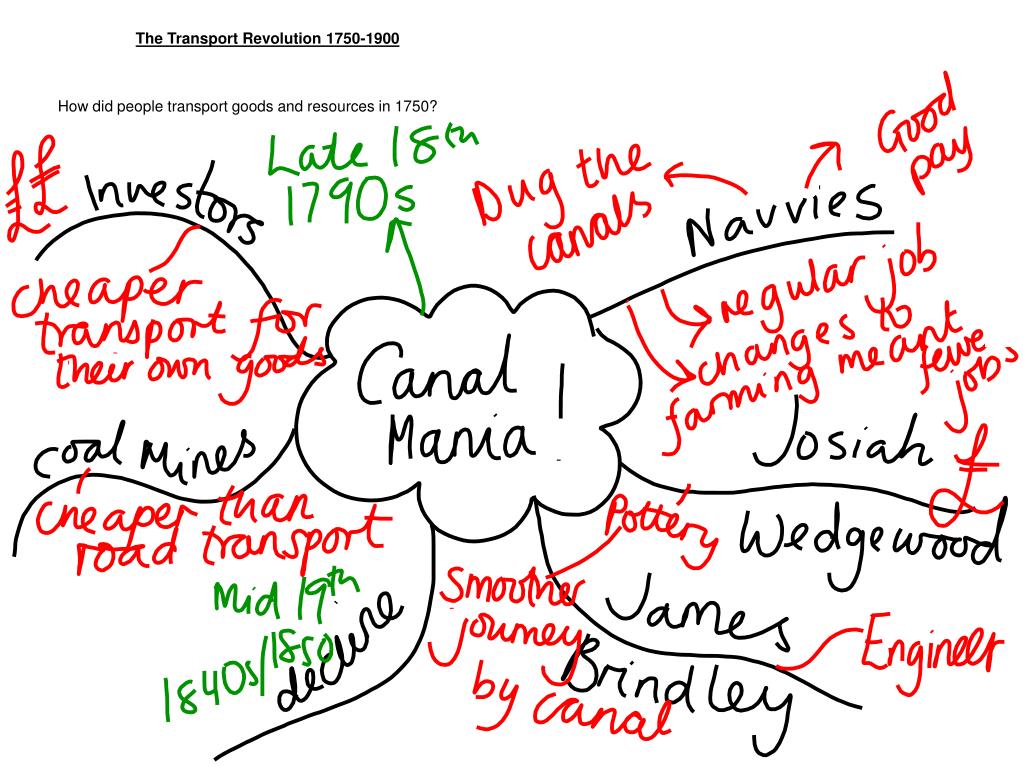 The Transport Revolution 1750-1900
How did people transport goods and resources in 1750?
££
£
Investors
cheaper
transport for
their own goods
Late 18th
1790s
Dug the
canals
Navvies
Good
pay
regular job
changes to
farming meant
fewe
jobs
Canal
Mania!
Coal Mines
cheaper than
road transport
Josiah
Wedgewood
£
Pottery
Smoother
journey
by canal
James
Brindley
Engineer
Mid 19th
1840s/1850
decline